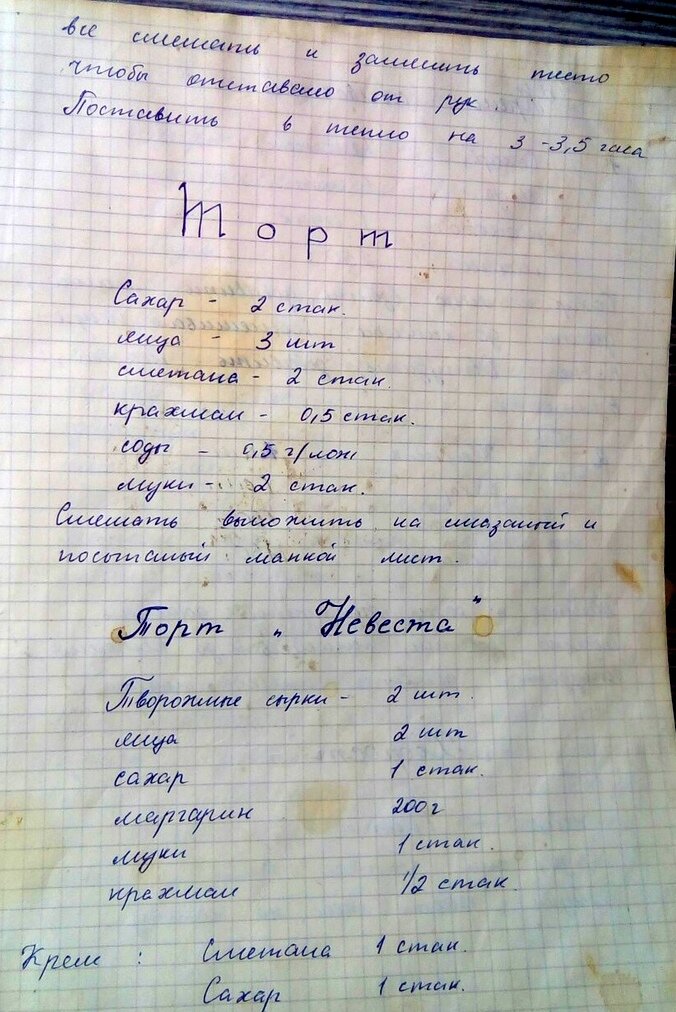 все смешать и замесить тесто
чтобы отставало от рук.
Поставить в тепло на 3-3,5 часа
Торт
Сахар - 2 стак.
яйца - 3 шт
сметана - 2 стак.
крахмал - 0,5 стак.
соды - 0,5 г/лож
муки - 2 стак.
Смешать выложить на смазаный и
посыпаный манкой лист.
Торт „Невеста"
Творожные сырки - 2 шт.
яйца 2 шт
сахар 1 стак.
маргарин 200г
муки 1 стак.
крахмал 1/2 стак.
Крем: Сметана 1 стак.
Сахар 1 стак.